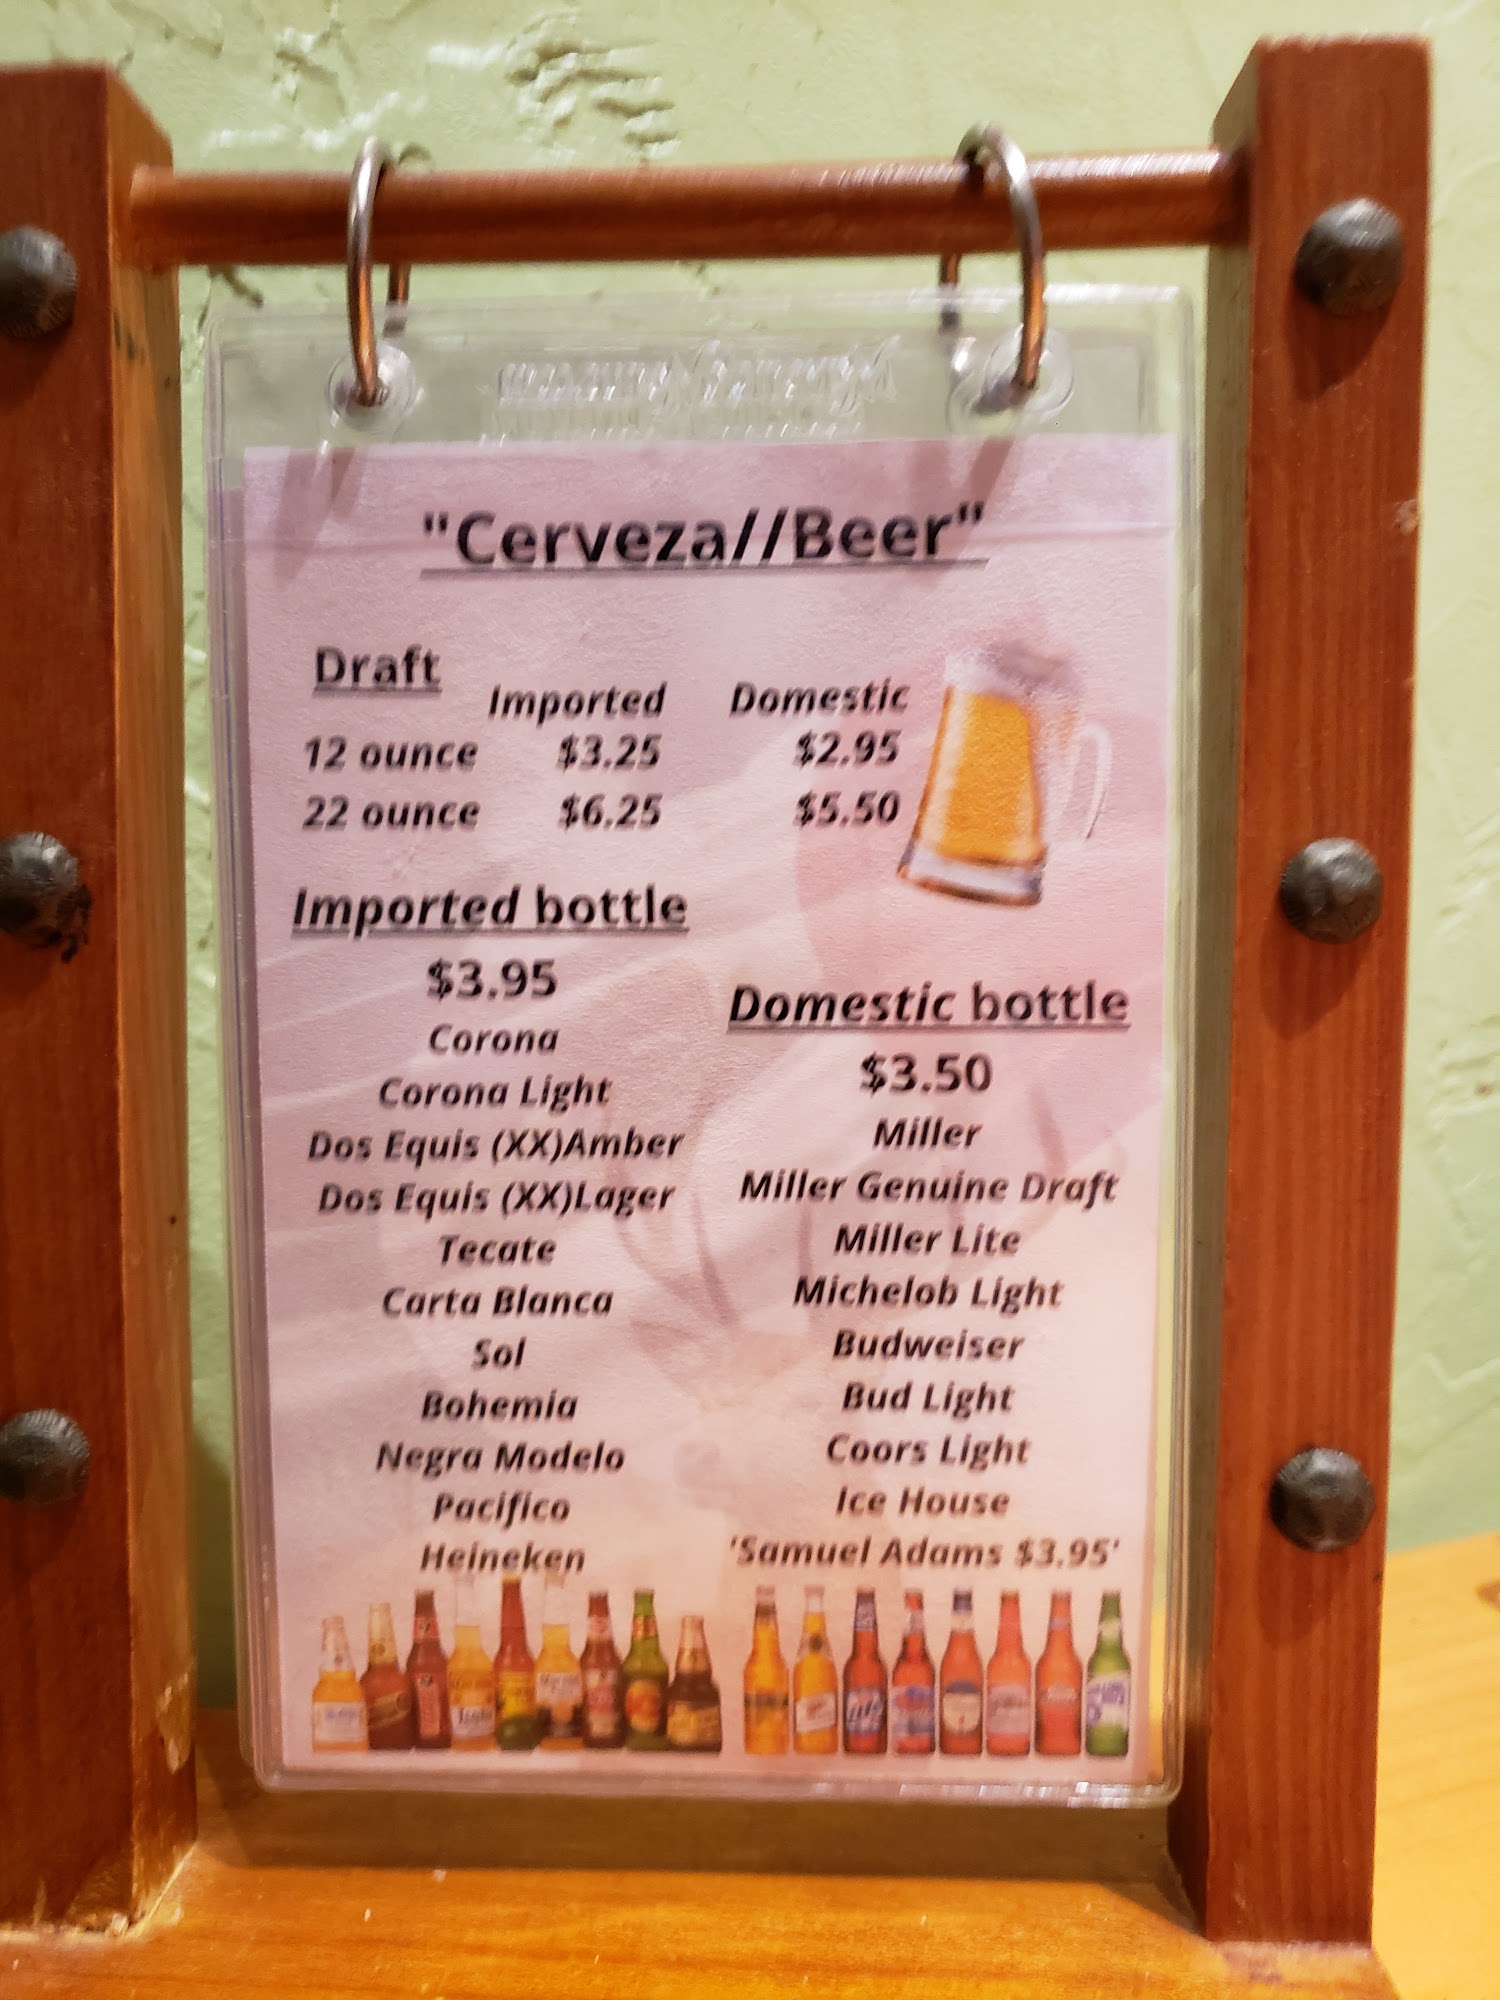 "Cerveza//Beer"
Draft
Imported Domestic
12 ounce $3.25 $2.95
22 ounce $6.25 $5.50
Imported bottle
$3.95
Corona
Corona Light
Dos Equis (XX)Amber
Dos Equis (XX)Lager
Tecate
Carta Blanca
Sol
Bohemia
Negra Modelo
Pacifico
Heineken
Domestic bottle
$3.50
Miller
Miller Genuine Draft
Miller Lite
Michelob Light
Budweiser
Bud Light
Coors Light
Ice House
'Samuel Adams $3.95'